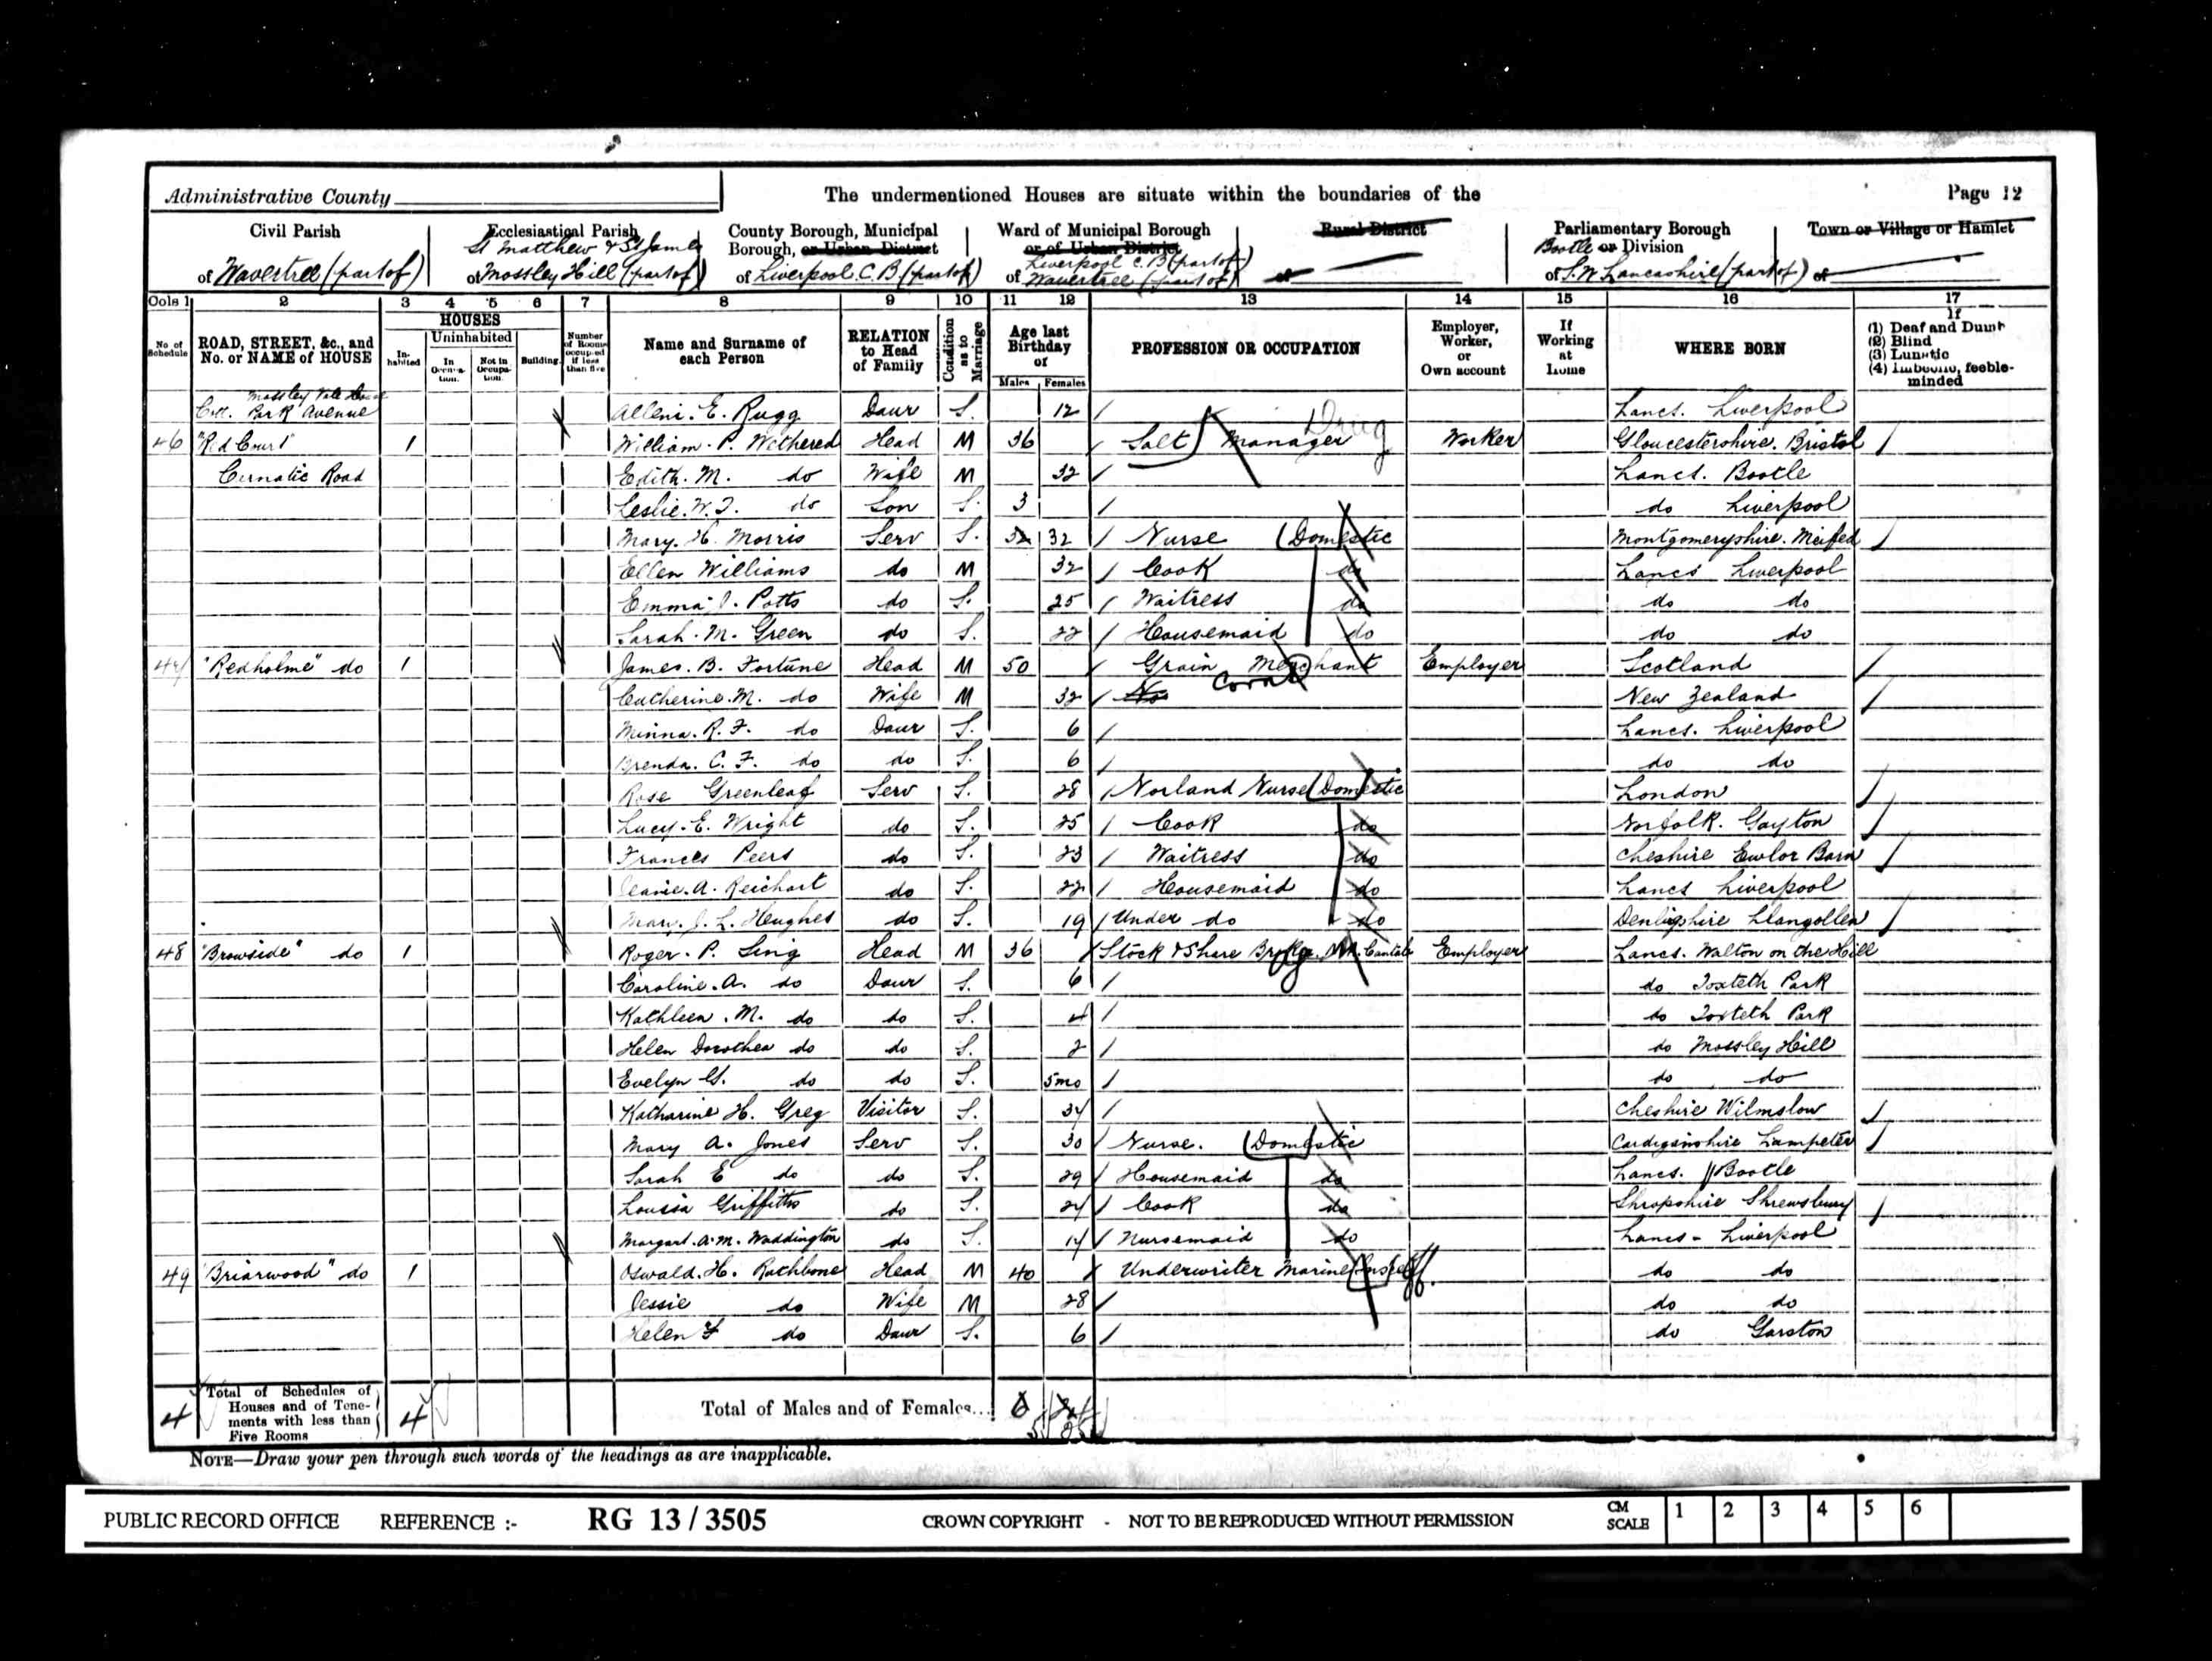 Administrative County The undermentioned Houses are situate within the boundaries of the Page 12
Civil Parish Ecclesiastical Parish County Borough, Municipal Ward of Municipal Borough Rural District Parliamentary Borough Town or Village or Hamlet
St Matthew & St James Borough, or Urban District or of Urban District Bootle or Division
of Wavertree (part of) of Mossley Hill (part of) of Liverpool C.B (part of) of Liverpool C.B (part of) Wavertree (part of) of of S.W Lancashire (part of) of
Cols 1 2 3 4 5 6 7 8 9 10 11 12 13 14 15 16 17
No. of Schedule ROAD, STREET, &c., and No. or NAME of HOUSE HOUSES Inhabited Uninhabited In Occupation. Not in Occupation. Building. Number of Rooms occupied if less than five Name and Surname of each Person RELATION to Head of Family Condition as to Marriage Age last Birthday of Males Females PROFESSION OR OCCUPATION Employer, Worker, or Own account If Working at Home WHERE BORN If (1) Deaf and Dumb (2) Blind (3) Lunatic (4) Imbecile, feeble-minded
Mossley Vale House
Park Avenue Daur S. 12 Lancs. Liverpool
46 "Red Court" 1 William. P. Wethered Head M 36 Salt Manager Drug Worker Gloucestershire. Bristol
Carnatic Road Edith. M. do Wife M 32 Lancs. Bootle
Leslie. W. T. do Son S. 3 do Liverpool
Mary. H. Morris Serv S. 32 32 Nurse (Domestic Montgomeryshire. Meifed
Ellen Williams do M 32 Cook do Lancs Liverpool
Emma J. Potts do S. 25 Waitress do do do
Sarah. M. Green do S. 22 Housemaid do do do
47 "Redholme" do 1 James. B. Fortune Head M 50 Grain Merchant Employer Scotland
Catherine. M. do Wife M 32 No Corn New Zealand
Minna. R. F. do Daur S. 6 Lancs. Liverpool
Brenda. C. F. do do S. 6 do do
Rose Greenleaf Serv S. 28 Norland Nurse (Domestic London
Lucy. E. Wright do S. 25 Cook do Norfolk. Gayton
Frances Peers do S. 23 Waitress do Cheshire Ewlor Barn
Jeanie. A. Reichart do S. 22 Housemaid do Lancs Liverpool
Mary. J. L. Heughes do S. 19 Under do do Denbigshire Llangollen
48 "Browside" do 1 Roger. P. Sing Head M 36 Stock & Share Broker M.A. Cantab Employer Lancs. Walton on the Hill
Caroline. A. do Daur S. 6 do Toxteth Park
Kathleen. M. do do S. 4 do Toxteth Park
Helen Dorothea do do S. 2 do Mossley Hill
Evelyn G. do do S. 5mo do do
Katharine H. Greg Visitor S. 34 Cheshire Wilmslow
Mary A. Jones Serv S. 30 Nurse. (Domestic Cardiganshire Lampeter
Sarah E do do S. 29 Housemaid do Lancs. Bootle
Louisa Griffiths do S. 24 Cook do Shropshire Shrewsbury
Margart. A. M. Waddington do S. 14 Nursemaid do Lancs - Liverpool
49 "Briarwood" do 1 Oswald. H. Rathbone Head M 40 Underwriter Marine do do
Jessie do Wife M 28 do do
Helen F do Daur S. 6 do Garston
4 Total of Schedules of Houses and of Tenements with less than Five Rooms 4 Total of Males and of Females... 6 5
NOTE—Draw your pen through such words of the headings as are inapplicable.
PUBLIC RECORD OFFICE REFERENCE :- RG 13 / 3505 CROWN COPYRIGHT - NOT TO BE REPRODUCED WITHOUT PERMISSION CM SCALE 1 2 3 4 5 6